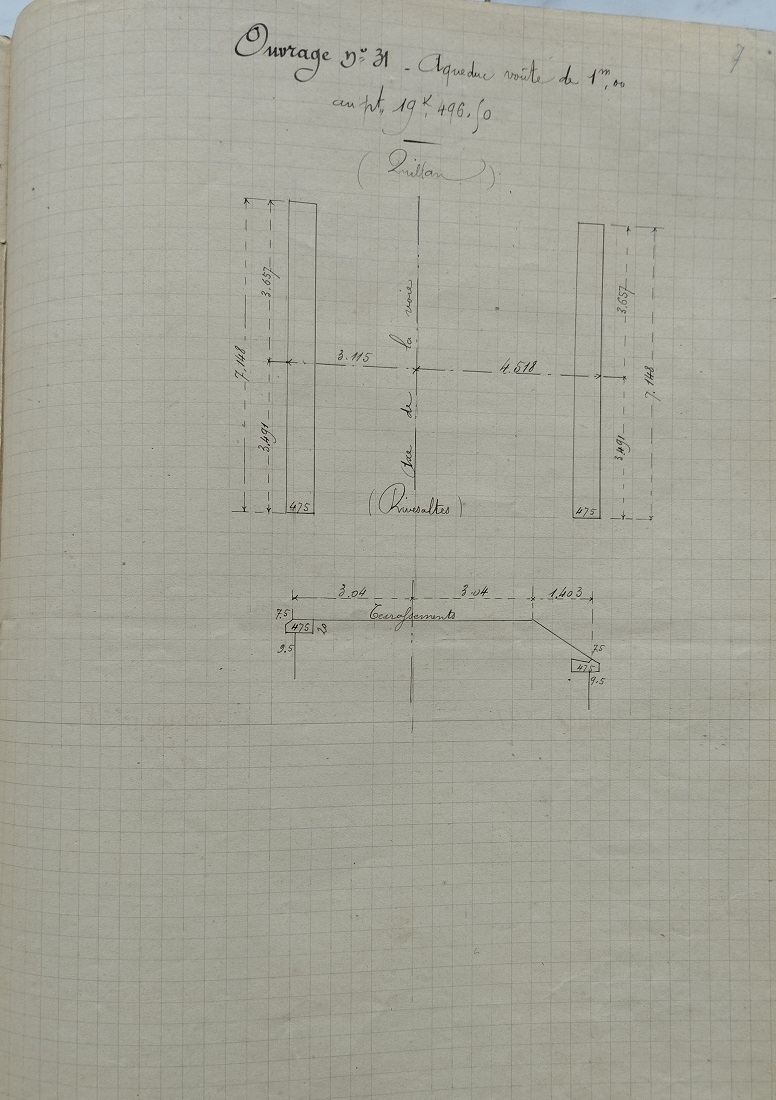 7
Ouvrage n° 31 - Aqueduc voûté de 1m,00
au pt. 19K,496.50
(Quillan)
3.657
3.657
7.148
3.115
Axe de la voie
4.518
7.148
3.491
3.491
475
(Rivesaltes)
475
3.04
3.04
1.403
7.5
475
Terrassements
9.5
7.5
475
9.5